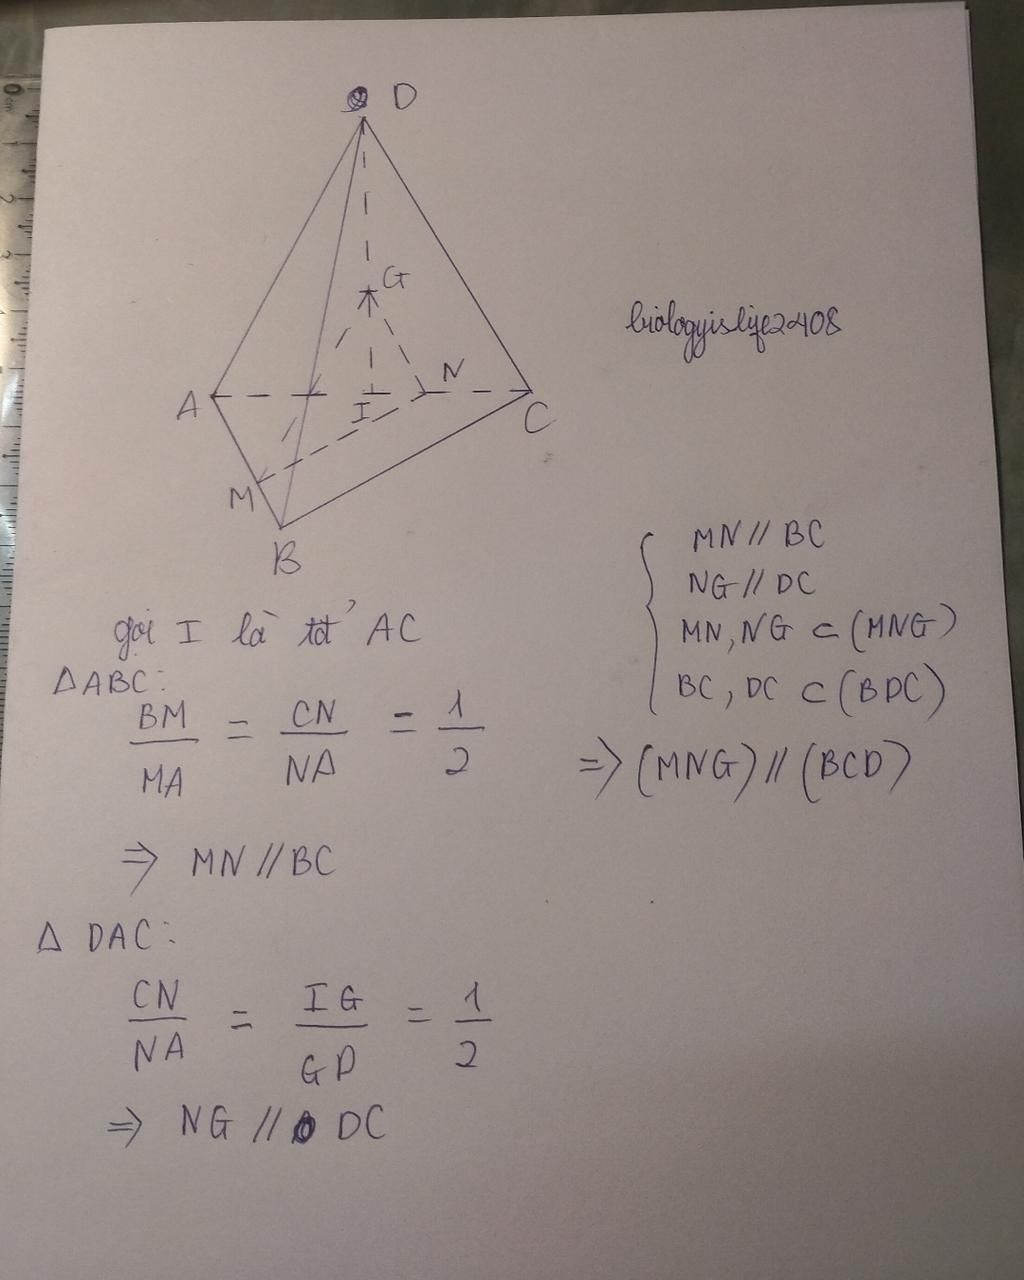 D
G
N
A
I
C
M
B
biologyislife2408
gọi I là tđ' AC
ΔABC:
BM/MA = CN/NA = 1/2
⇒ MN // BC
Δ DAC:
CN/NA = IG/GD = 1/2
⇒ NG // DC
MN // BC
NG // DC
MN, NG ⊂ (MNG)
BC, DC ⊂ (BDC)
⇒ (MNG) // (BCD)
0
cm
2
3